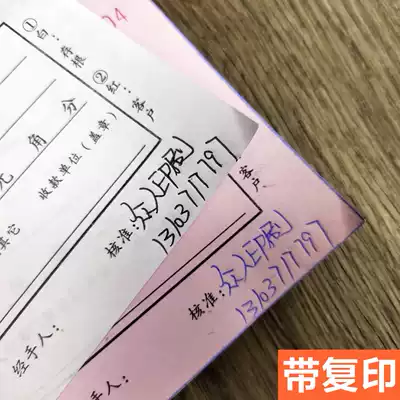 ①白:存根
②红:客户
元角分
收款单位(盖章)
其它
核准:众人印刷
13103717797
经手人:
客户
核准:众人印刷
13103717797
经手人:
带复印